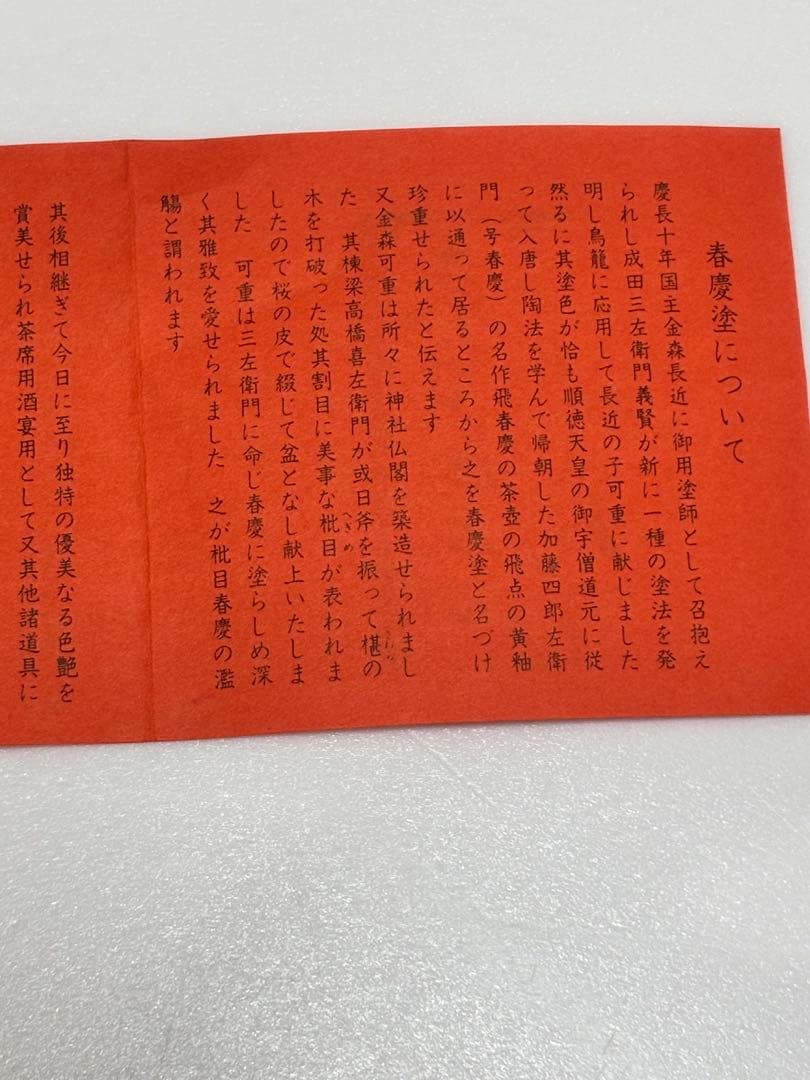 春慶塗について
慶長十年国主金森長近に御用塗師として召抱え
られし成田三左衛門義賢が新に一種の塗法を発
明し鳥籠に応用して長近の子可重に献じました
然るに其塗色が恰も順徳天皇の御宇僧道元に従
って入唐し陶法を学んで帰朝した加藤四郎左衛
門（号春慶）の名作飛春慶の茶壺の飛点の黄釉
に以通って居るところから之を春慶塗と名づけ
珍重せられたと伝えます
又金森可重は所々に神社仏閣を築造せられまし
た　其棟梁高橋喜左衛門が或日斧を振って椹の
木を打破った処其割目に美事な枇目が表われま
したので桜の皮で綴じて盆となし献上いたしま
した　可重は三左衛門に命じ春慶に塗らしめ深
く其雅致を愛せられました　之が枇目春慶の濫
觴と謂われます
其後相継ぎて今日に至り独特の優美なる色艶を
賞美せられ茶席用酒宴用として又其他諸道具に
へぎめ
さわら